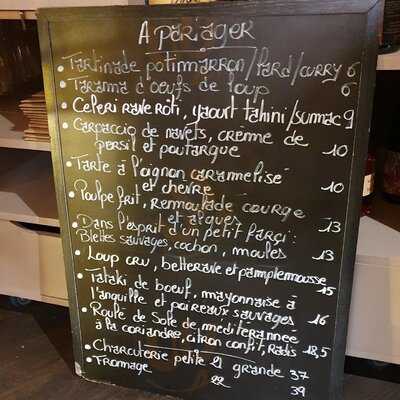 A pARTAGER
• Tartinade potimarron/lard/curry 6
• Tarama d'oeufs de loup 6
• Celeri rave roti, yaourt tahini/sumac 9
• Carpaccio de navets, crème de
persil et poutargue 10
• Tarte à l'oignon caramelisé
et chevre 10
• Poulpe frit, remoulade courge
et algues 13
• Dans l'esprit d'un petit farci :
Blettes sauvages, cochon, moules 13
• Loup cru, betterave et pamplemousse 15
• Tataki de boeuf, mayonnaise à
l'anguille et poireaux sauvages 16
• Roule de Sole de méditerrannée
à la coriandre, citron confit, Radis 18,5
• Charcuterie petite 21 grande 37
• Fromage 22 39